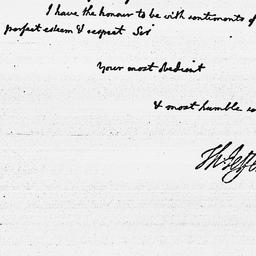 I have the honour to be with sentiments of
perfect esteem & respect Sir
Your most obedient
& most humble se
Th: Jeffe